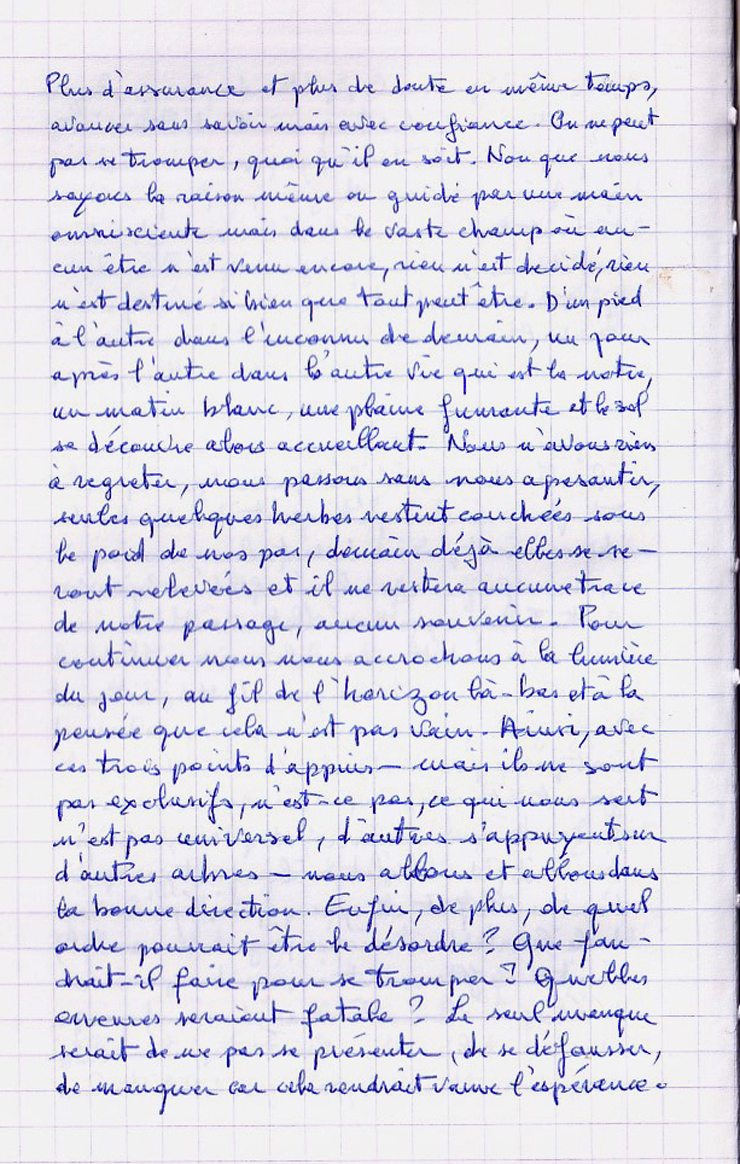 Plus d'assurance et plus de doute en même temps,
avancer sans savoir mais avec confiance. On ne peut
pas se tromper, quoi qu'il en soit. Non que nous
soyons la raison même ou guidé par une main
omnisciente mais dans le vaste champ où au-
cun être n'est venu encore, rien n'est decidé, rien
n'est destiné si bien que tout peut être. D'un pied
à l'autre dans l'inconnu de demain, un jour
après l'autre dans l'autre vie qui est la notre,
un matin blanc, une plaine fumante et le sol
se découvre alors accueillant. Nous n'avons rien
à regreter, nous passons sans nous apesantir,
seules quelques herbes restent couchées sous
le poid de nos pas, demain déjà elles se se-
ront relevées et il ne restera aucune trace
de notre passage, aucun souvenir. Pour
continuer nous nous accrochons à la lumière
du jour, au fil de l'horizon là-bas et à la
pensée que cela n'est pas vain. Ainsi, avec
ces trois points d'appuis — mais ils ne sont
pas exclusifs, n'est-ce pas, ce qui nous sert
n'est pas universel, d'autres s'appuyent sur
d'autres arbres — nous allons et allons dans
la bonne direction. Enfin, de plus, de quel
ordre pourrait être le désordre ? Que fau-
drait-il faire pour se tromper ? Quelles
erreures seraient fatale ? Le seul manque
serait de ne pas se présenter, de se défausser,
de manquer car cela rendrait vaine l'espérance.